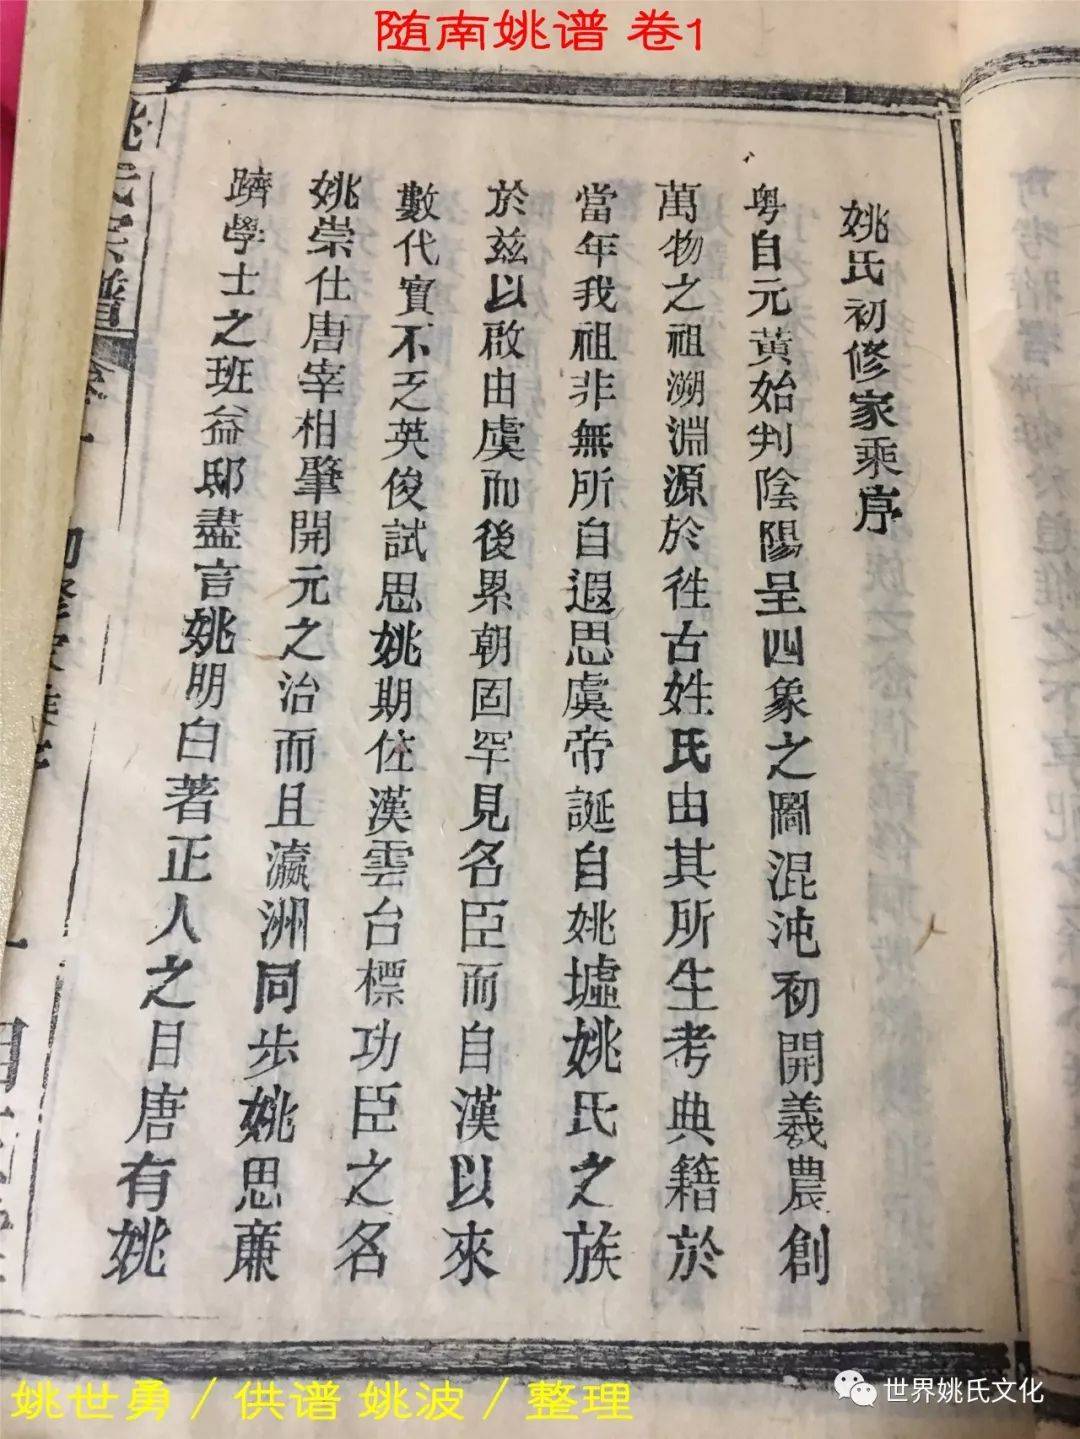 随南姚谱 卷1
姚氏初修家乘序
粤自元黄始判陰陽呈四象之圖混沌初開羲農創
萬物之祖溯淵源於徃古姓氏由其所生考典籍於
當年我祖非無所自遐思虞帝誕自姚墟姚氏之族
於兹以啟由虞而後累朝固罕見名臣而自漢以來
數代實不乏英俊試思姚期佐漢雲台標功臣之名
姚崇仕唐宰相肇開元之治而且瀛洲同步姚思亷
躋學士之班益邸盡言姚明白著正人之目唐有姚
姚氏宗譜
姚世勇／供谱 姚波／整理
世界姚氏文化